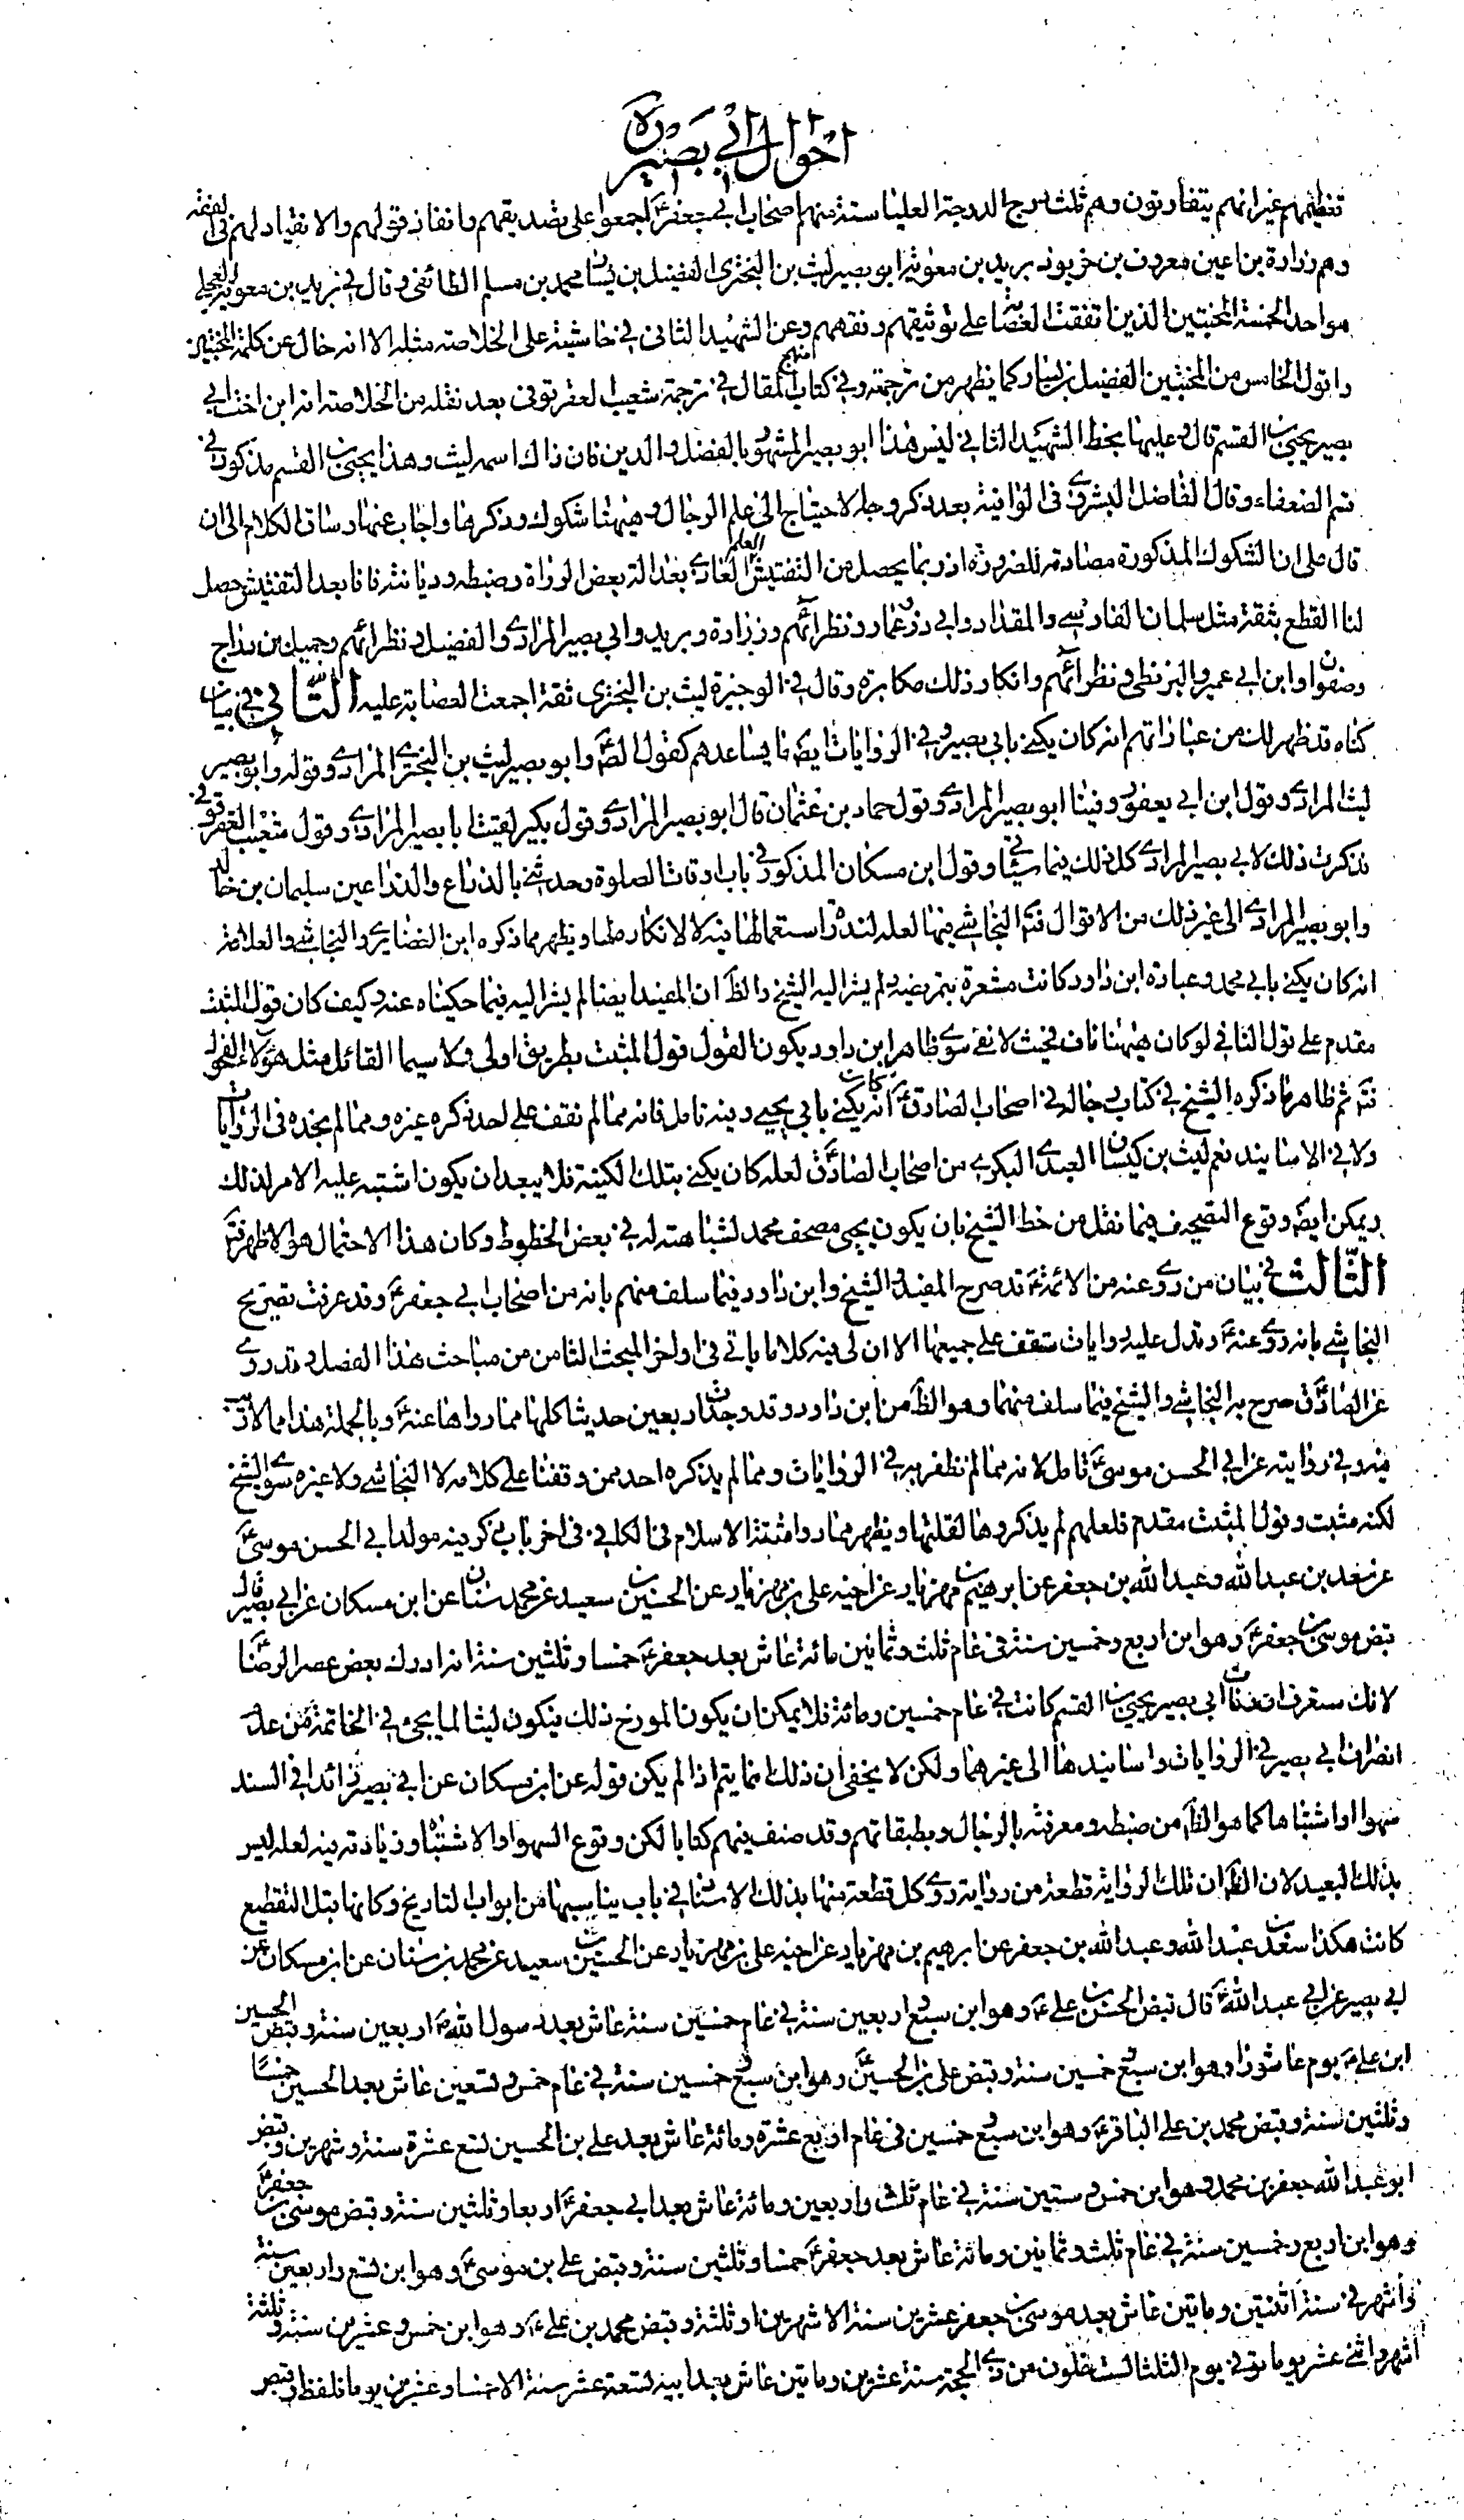 احوال ابي بصير ره
تعظيمهم غير انهم يتفاوتون وهم ثلث درج الدرجة العليا ستة منهم اصحاب ابي جعفر ع اجمعوا على تصديقهم وانفاذ قولهم والانقياد لهم في الفقه
وهم زرارة بن اعين معروف بن خربوذ بريد بن معوية ابو بصير ليث بن البختري الفضيل بن يسار محمد بن مسلم الطائفي وقال في بريد بن معوية العجلي
هو احد الخمسة المخبتين الذين اتفقت العصابة على توثيقهم وفقههم وعن الشهيد الثاني في حاشيته على الخلاصة مثله الا انه خال عن كلمة المخبتين
واقول الخامس من المخبتين الفضيل بن يسار كما يظهر من ترجمته وفي كتاب منهج المقال في ترجمة شعيب العقرقوفي بعد نقله من الخلاصة انه ابن اخت ابي
بصير يحيى بن القسم قال وعليها بخط الشهيد الثاني ليس هذا ابو بصير المشهور بالفضل والدين فان ذاك اسمه ليث وهذا يحيى بن القسم مذكور في
قسم الضعفاء وقال الفاضل البشروي في الوافية بعد ذكر وجه الاحتياج الى علم الرجال وهيهنا شكوك وذكرها واجاب عنها وساق الكلام الى ان
قال على ان الشكوك المذكورة مصادمة للضرورة اذ ربما يحصل من التفتيش العلم العادي بعدالة بعض الرواة وضبطه وديانته فانا بعد التفتيش حصل
لنا القطع بثقة مثل سلمان الفارسي والمقداد وابي ذر وعمار ونظرائهم وزرارة وبريد وابي بصير المرادي والفضيل ونظرائهم وجميل بن دراج
وصفوان وابن ابي عمير والبزنطي ونظرائهم وانكار ذلك مكابرة وقال في الوجيزة ليث بن البختري ثقة اجمعت العصابة عليه الثاني في بيان
كناه قد ظهر لك من عباراتهم انه كان يكنى بابي بصير وفي الروايات ايضا ما يساعدهم كقول الصم وابو بصير ليث بن البختري المرادي وقوله وابو بصير
ليث المرادي وقول ابن ابي يعفور وفينا ابو بصير المرادي وقول حماد بن عثمان قال ابو بصير المرادي وقول بكير لقيت ابا بصير المرادي وقول شعيب العقرقوفي
فذكرت ذلك لابي بصير المرادي كل ذلك فيما سيأتي وقول ابن مسكان المذكور في باب اوقات الصلوة وحدثني بالذراع والذراعين سليمان بن خالد
وابو بصير المرادي الى غير ذلك من الاقوال فتم النجاشي فيها لعله لندرة استعمالها فيه لا لانكاره لها ويظهر مما ذكره ابن الغضايري والنجاشي والعلامة
انه كان يكنى بابي محمد وعبارة ابن داود كانت مشعرة بتمريضه ولم يشر اليه الشيخ والظ ان المفيد ايضا لم يشر اليه فيما حكيناه عنه وكيف كان قول المثبت
مقدم على قول النافي لو كان هيهنا ناف فحيث لا نفي سوى ظاهر ابن داود يكون القول قول المثبت بطريق اولى ولا سيما القائل مثل هؤلاء الفحول
فتم ثم ظاهر ما ذكره الشيخ في كتاب رجاله في اصحاب الصادق ع انه كان يكنى بابي يحيى وفيه تامل فانه مما لم نقف على احد ذكره غيره ومما لم نجده في الروايات
ولا في الاسانيد نعم ليث بن كيسان العبدي البكري من اصحاب الصادق لعله كان يكنى بتلك الكنية فلا يبعد ان يكون اشتبه عليه الامر لذلك
ويمكن ايضا وقوع التصحيف فيما نقل من خط الشيخ بان يكون يحيى مصحف محمد لشباهته له في بعض الخطوط وكان هذا الاحتمال هو الاظهر فتم
الثالث في بيان من روى عنه من الائمة ع قد صرح المفيد والشيخ وابن داود فيما سلف منهم بانه من اصحاب ابي جعفر ع وقد عرفت تصريح
النجاشي بانه روى عنه ع وتدل عليه روايات ستقف على جميعها الا ان لي فيه كلاما ياتي في اواخر المبحث الثامن من مباحث هذا الفصل وقد روى
عن الصادق صرح به النجاشي والشيخ فيما سلف منهما وهو الظ من ابن داود وقد وجدت اربعين حديثا كلها مما رواها عنه ع وبالجملة هذا مما لا ريب
فيه وفي روايته عن ابي الحسن موسى ع تامل لانه مما لم نظفر به في الروايات ومما لم يذكره احد ممن وقفنا على كلامه لا النجاشي ولا غيره سوى الشيخ
لكنه مثبت وقول المثبت مقدم فلعلهم لم يذكروها لقلتها ويظهر مما رواه ثقة الاسلام في الكافي في اخر باب ذكر فيه مولد ابي الحسن موسى ع
عن سعد بن عبد الله وعبد الله بن جعفر عن ابرهيم بن مهزيار عن اخيه علي بن مهزيار عن الحسين بن سعيد عن محمد بن سنان عن ابن مسكان عن ابي بصير قال
قبض موسى بن جعفر ع وهو ابن اربع وخمسين سنة في عام ثلث وثمانين ومائة عاش بعد جعفر ع خمسا وثلثين سنة انه ادرك بعض عصر الرضا ع
لانك ستعرف ان وفات ابي بصير يحيى بن القسم كانت في عام خمسين ومائة فلا يمكن ان يكون المورخ ذلك فيكون ليثا لما يجئ في الخاتمة من عدم
انصراف ابي بصير في الروايات واسانيدها الى غيرهما ولكن لا يخفى ان ذلك انما يتم اذا لم يكن قوله عن ابن مسكان عن ابي بصير زائدا في السند
سهوا او اشتباها كما هو الظ من ضبطه ومعرفته بالرجال وبطبقاتهم وقد صنف فيهم كتابا لكن وقوع السهو او الاشتباه وزيادته فيه لعله ليس
بذلك البعيد لان الظ ان تلك الرواية قطعة من رواية روى كل قطعة منها بذلك الاسناد في باب يناسبها من ابواب التاريخ وكانها قبل التقطيع
كانت هكذا سعد بن عبد الله وعبد الله بن جعفر عن ابرهيم بن مهزيار عن اخيه علي بن مهزيار عن الحسين بن سعيد عن محمد بن سنان عن ابن مسكان عن
ابي بصير عن ابي عبد الله ع قال قبض الحسن بن علي ع وهو ابن سبع واربعين سنة في عام خمسين سنة عاش بعد رسول الله ص اربعين سنة وقبض الحسين
ابن علي ع يوم عاشورا وهو ابن سبع وخمسين سنة وقبض علي بن الحسين ع وهو ابن سبع وخمسين سنة في عام خمس وتسعين عاش بعد الحسين خمسا
وثلثين سنة وقبض محمد بن علي الباقر ع وهو ابن سبع وخمسين في عام اربع عشرة ومائة عاش بعد علي بن الحسين تسع عشرة سنة وشهرين وقبض
ابو عبد الله جعفر بن محمد وهو ابن خمس وستين سنة في عام ثلث واربعين ومائة عاش بعد ابي جعفر ع اربعا وثلثين سنة وقبض موسى بن جعفر ع
وهو ابن اربع وخمسين سنة في عام ثلث وثمانين ومائة عاش بعد جعفر ع خمسا وثلثين سنة وقبض علي بن موسى ع وهو ابن تسع واربعين سنة
واشهر في سنة اثنتين وماتين عاش بعد موسى بن جعفر عشرين سنة الا شهرين او ثلثة وقبض محمد بن علي ع وهو ابن خمس وعشرين سنة وثلثة
اشهر واثنى عشر يوما توفي يوم الثلثا لست خلون من ذي الحجة سنة عشرين وماتين عاش بعد ابيه تسعة عشر سنة الا خمسا وعشرين يوما فلفظ قبض